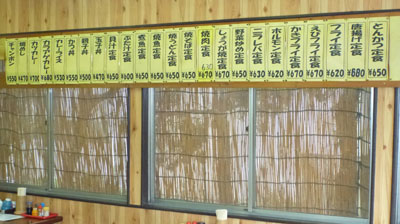 とんかつ定食 ¥650
唐揚げ定食 ¥680
フライ定食 ¥620
えびフライ定食 ¥670
かきフライ定食 ¥670
ホルモン定食 ¥620
ニラレバ定食 ¥630
野菜炒め定食 ¥650
しょうが焼定食 ¥670
焼肉定食 ¥670
焼そば定食 ¥650
焼うどん定食 ¥650
焼魚定食 ¥650
煮魚定食 ¥650
ぶた汁定食 ¥650
貝汁定食 ¥650
玉子丼 ¥470
親子丼 ¥500
かつ丼 ¥550
カレーライス ¥530
カツカレー ¥680
カツライス ¥700
焼めし ¥470
チャンポン ¥550